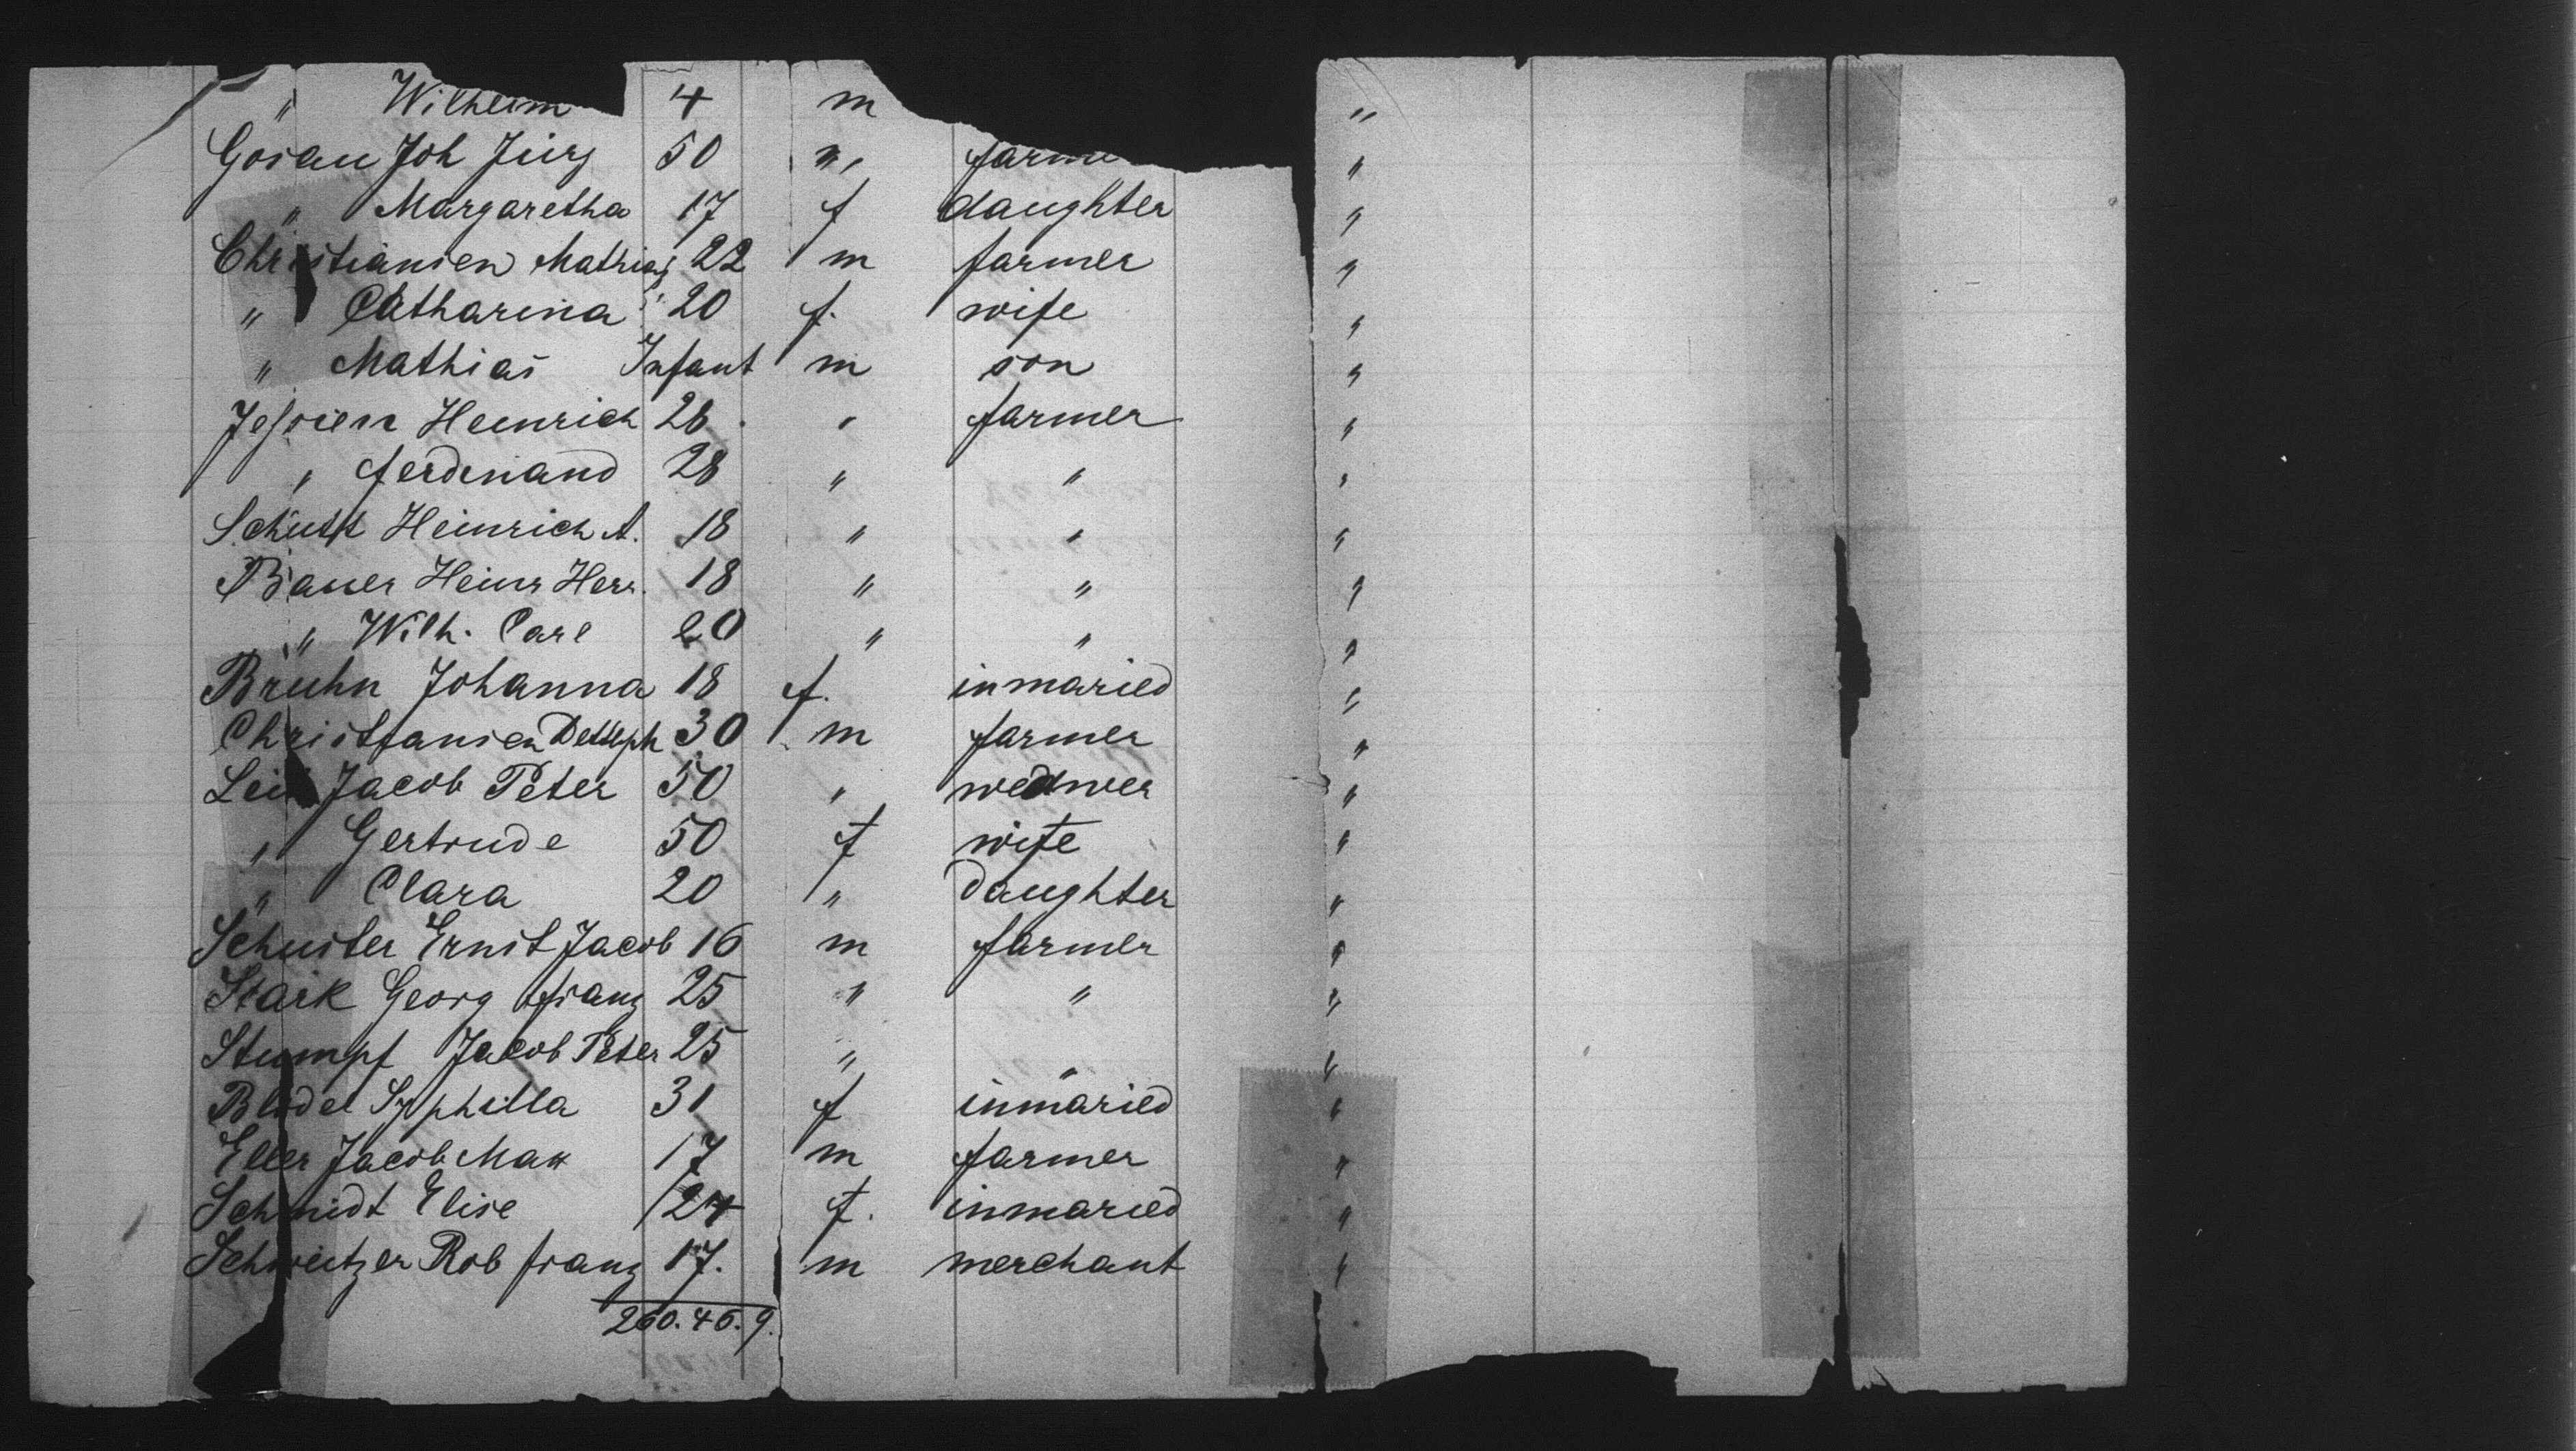 " Wilhelm 4 m "
Gosau Joh Jürg 50 " farme "
" Margaretha 17 f daughter "
Christiansen Mathias 22 m farmer "
" Catharina 20 f. wife "
" Mathias Infant m son "
Jessien Heinrich 26 " farmer "
" ferdinand 28 " " "
Schutt Heinrich A. 18 " " "
Bauer Heinr Herr. 18 " " "
" Wilh. Carl 20 " " "
Bruhn Johanna 18 f. inmaried "
Christiansen Detleph 30 m farmer "
Jacob Peter 50 " "
" Gertrude 50 f wife "
" Clara 20 " daughter "
Schuster Ernst Jacob 16 m farmer "
Stark Georg franz 25 " " "
Stumpf Jacob Peter 25 " " "
31 f inmaried "
Eller Jacob Max 17 m farmer "
Schmidt Elise 24 f. inmaried "
Schweitzer Rob franz 17. m merchant "
260. 46. 9.